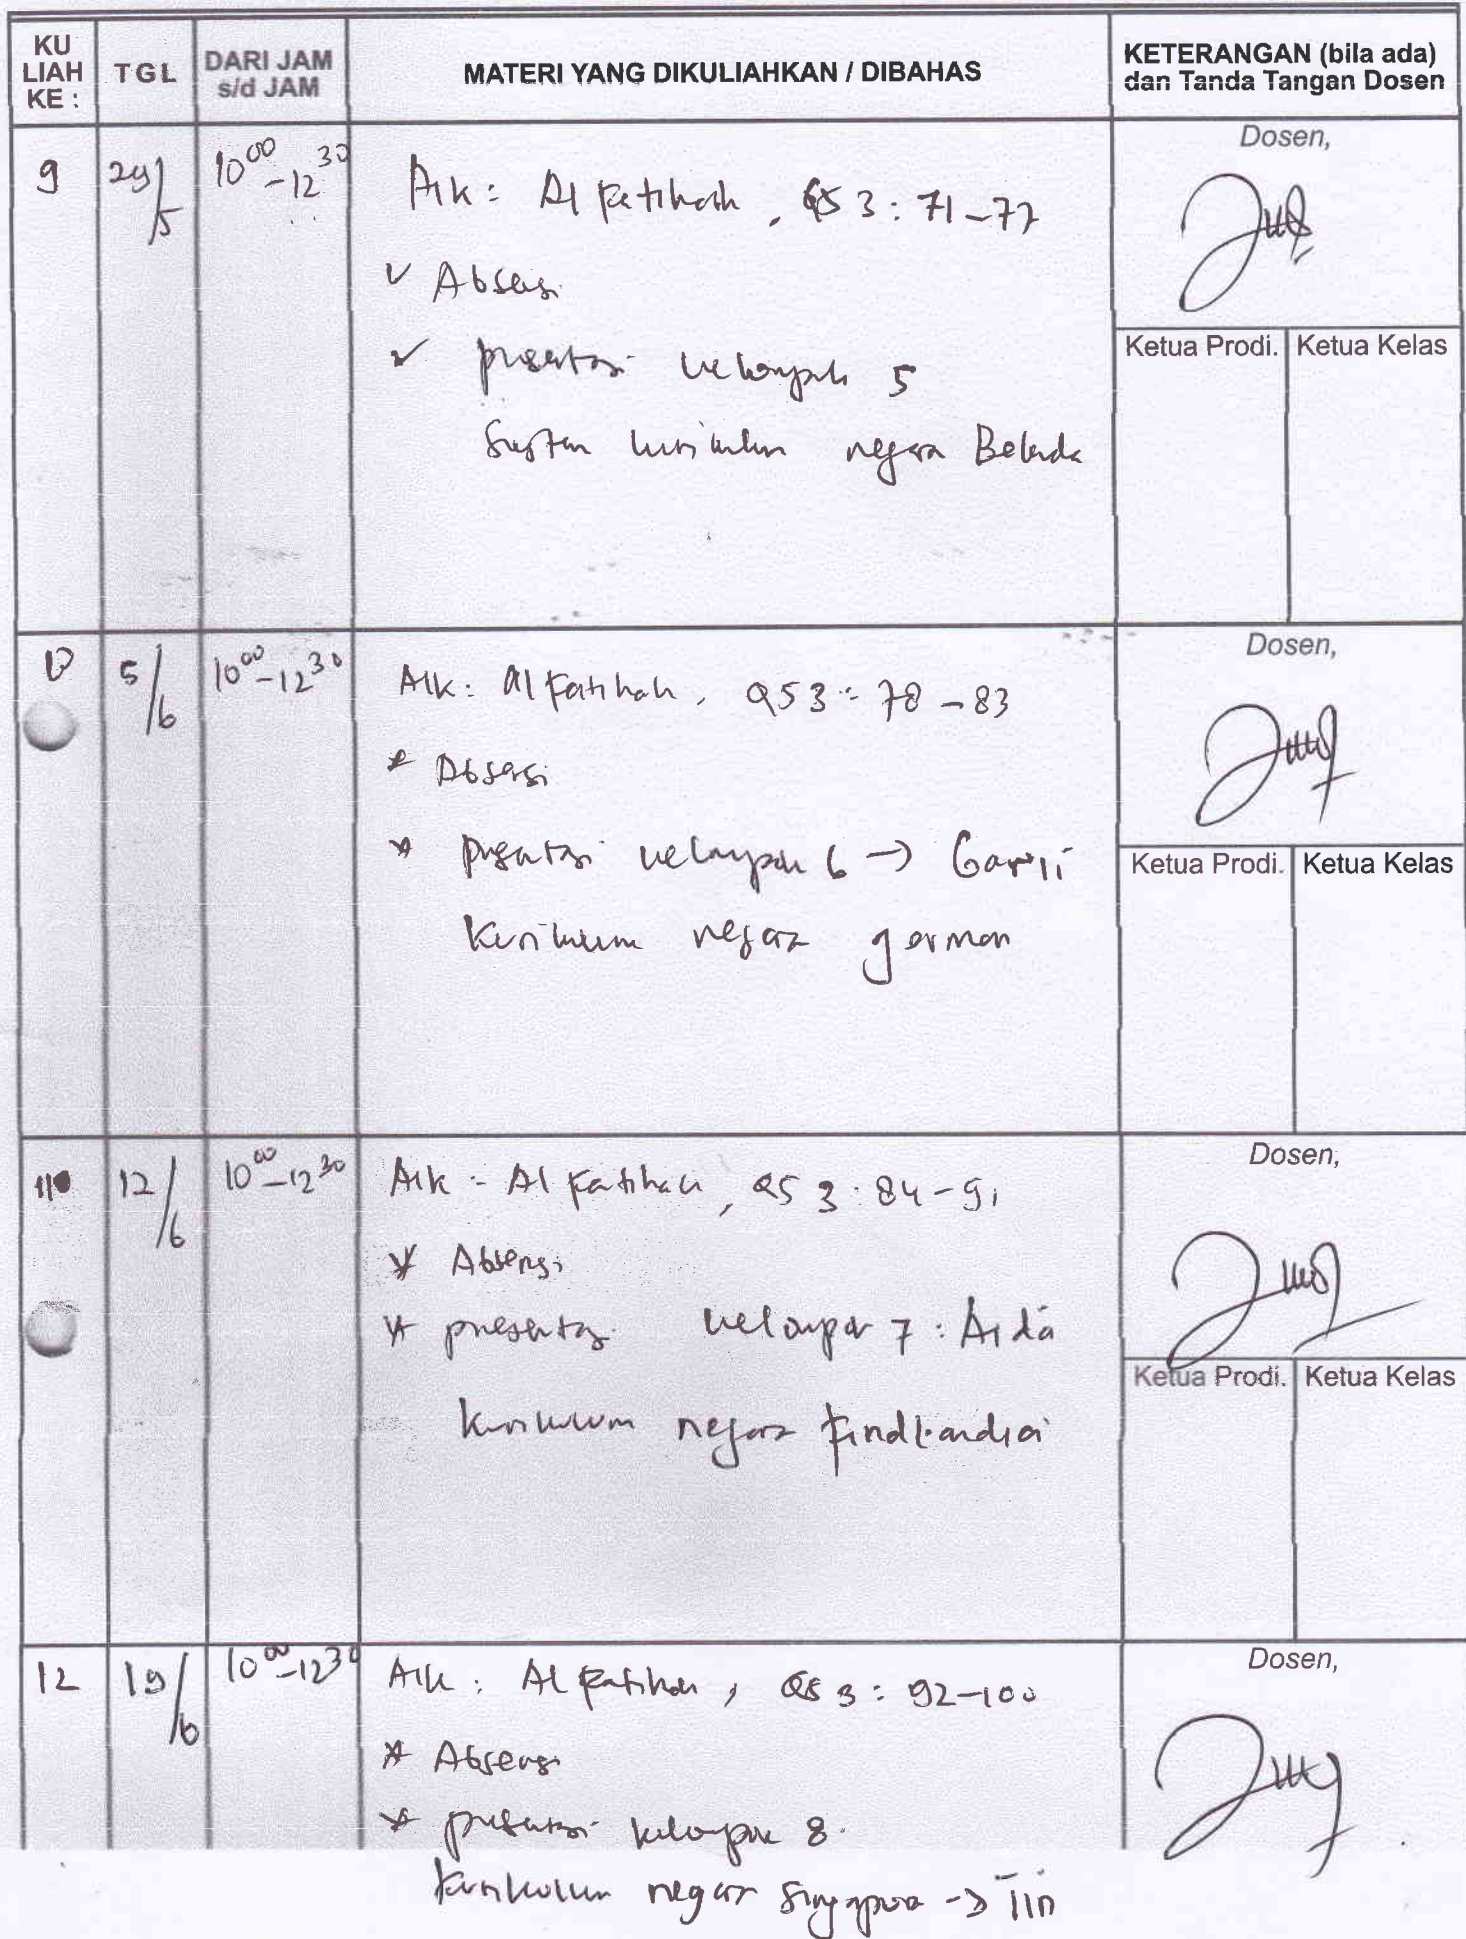 KU LIAH KE :
TGL
DARI JAM s/d JAM
MATERI YANG DIKULIAHKAN / DIBAHAS
KETERANGAN (bila ada) dan Tanda Tangan Dosen
9
29/5
10⁰⁰-12³⁰
AIK: Al Fatihah, QS 3: 71-77
✓ Absensi
✓ presentasi kelompok 5
Sistem kurikulum negara Belanda
Dosen,
Ketua Prodi.
Ketua Kelas
10
5/6
10⁰⁰-12³⁰
AIK: Al Fatihah, QS 3: 78-83
* Absensi
* presentasi kelompok 6 →
Kurikulum negara german
Dosen,
Ketua Prodi.
Ketua Kelas
11
12/6
10⁰⁰-12³⁰
AIK: Al Fatihah, QS 3: 84-91
* Absensi
* presentasi kelompok 7: Aida
Kurikulum negara Findlandia
Dosen,
Ketua Prodi.
Ketua Kelas
12
19/6
10⁰⁰-12³⁰
AIK: Al Fatihah, QS 3: 92-100
* Absensi
* presentasi kelompok 8.
Kurikulum negara Singapura → Iin
Dosen,